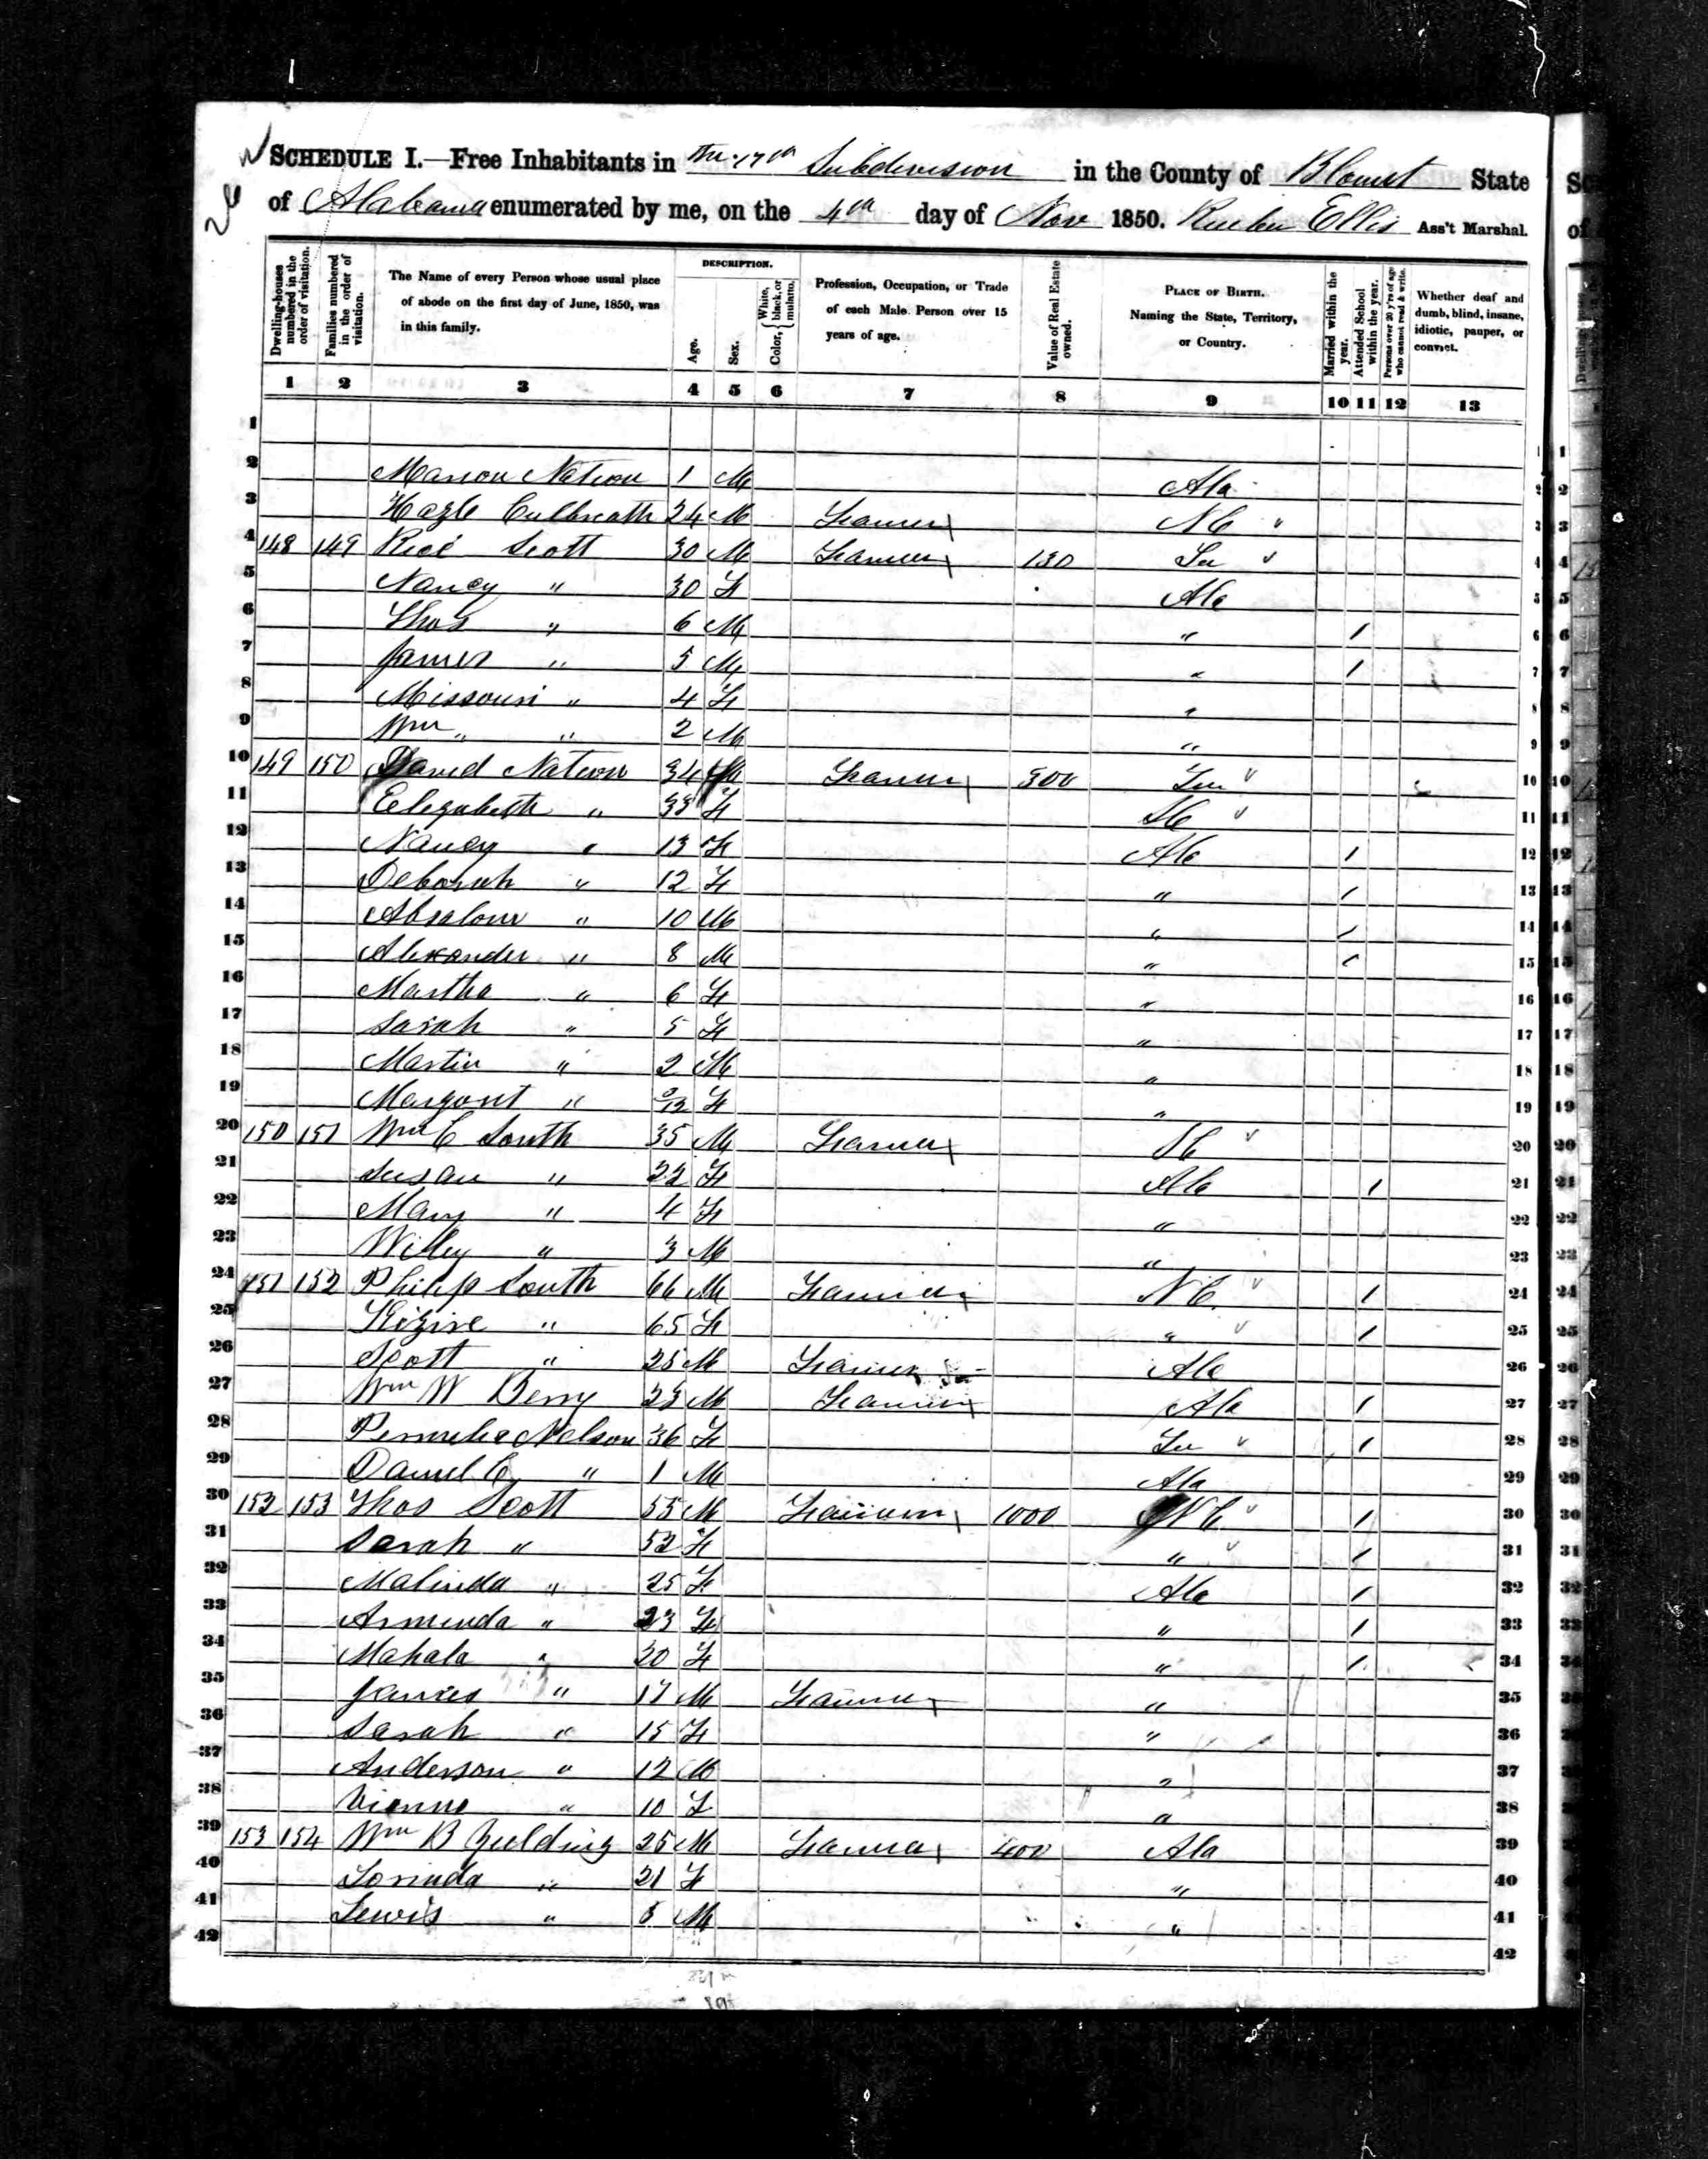 SCHEDULE I.—Free Inhabitants in the 17th Subdivision in the County of Blount State
of Alabama enumerated by me, on the 4th day of Nov 1850. Reuben Ellis Ass't Marshal.
Dwelling-houses numbered in the order of visitation.
Families numbered in the order of visitation.
The Name of every Person whose usual place of abode on the first day of June, 1850, was in this family.
DESCRIPTION.
Age.
Sex.
Color, { White, black, or mulatto.
Profession, Occupation, or Trade of each Male Person over 15 years of age.
Value of Real Estate owned.
PLACE OF BIRTH. Naming the State, Territory, or Country.
Married within the year.
Attended School within the year.
Persons over 20 y'rs of age who cannot read & write.
Whether deaf and dumb, blind, insane, idiotic, pauper, or convict.
1 2 3 4 5 6 7 8 9 10 11 12 13
1 1
2 Marion Nation 1 M Ala 2
3 Hazle Culbreath 24 M Farmer NC 3
4 148 149 Rice Scott 30 M Farmer 130 Ten 4
5 Nancy " 30 F Ala 5
6 Thos " 6 M " / 6
7 James " 5 M " / 7
8 Missouri " 4 F " 8
9 Wm " " 2 M " 9
10 149 150 David Nation 34 M Farmer 300 Ten 10
11 Elizabeth " 33 F SC 11
12 Nancy " 13 F Ala / 12
13 Deborah " 12 F " / 13
14 Absalom " 10 M " / 14
15 Alexander " 8 M " / 15
16 Martha " 6 F " 16
17 Sarah " 5 F " 17
18 Martin " 2 M " 18
19 Margaret " /12 F " 19
20 150 151 Wm C South 35 M Farmer SC 20
21 Susan " 22 F Ala / 21
22 Mary " 4 F " 22
23 Willey " 3 M " 23
24 151 152 Philip South 66 M Farmer NC / 24
25 Kizire " 65 F " / 25
26 Scott " 25 M Farmer Ala 26
27 Wm W Berry 23 M Farmer Ala / 27
28 Nelson 36 F Ten / 28
29 Daniel C " 1 M Ala 29
30 152 153 Thos Scott 55 M Farmer 1000 NC / 30
31 Sarah " 52 F " / 31
32 Malinda " 25 F Ala / 32
33 Armenda " 23 F " / 33
34 Mahala " 20 F " / 34
35 James " 17 M Farmer " 35
36 Sarah " 15 F " 36
37 Anderson " 12 M " 37
38 Vienna " 10 F " 38
39 153 154 Wm B Yeilding 25 M Farmer 400 Ala 39
40 Lorinda " 21 F " 40
41 Lewis " M " 41
42 42